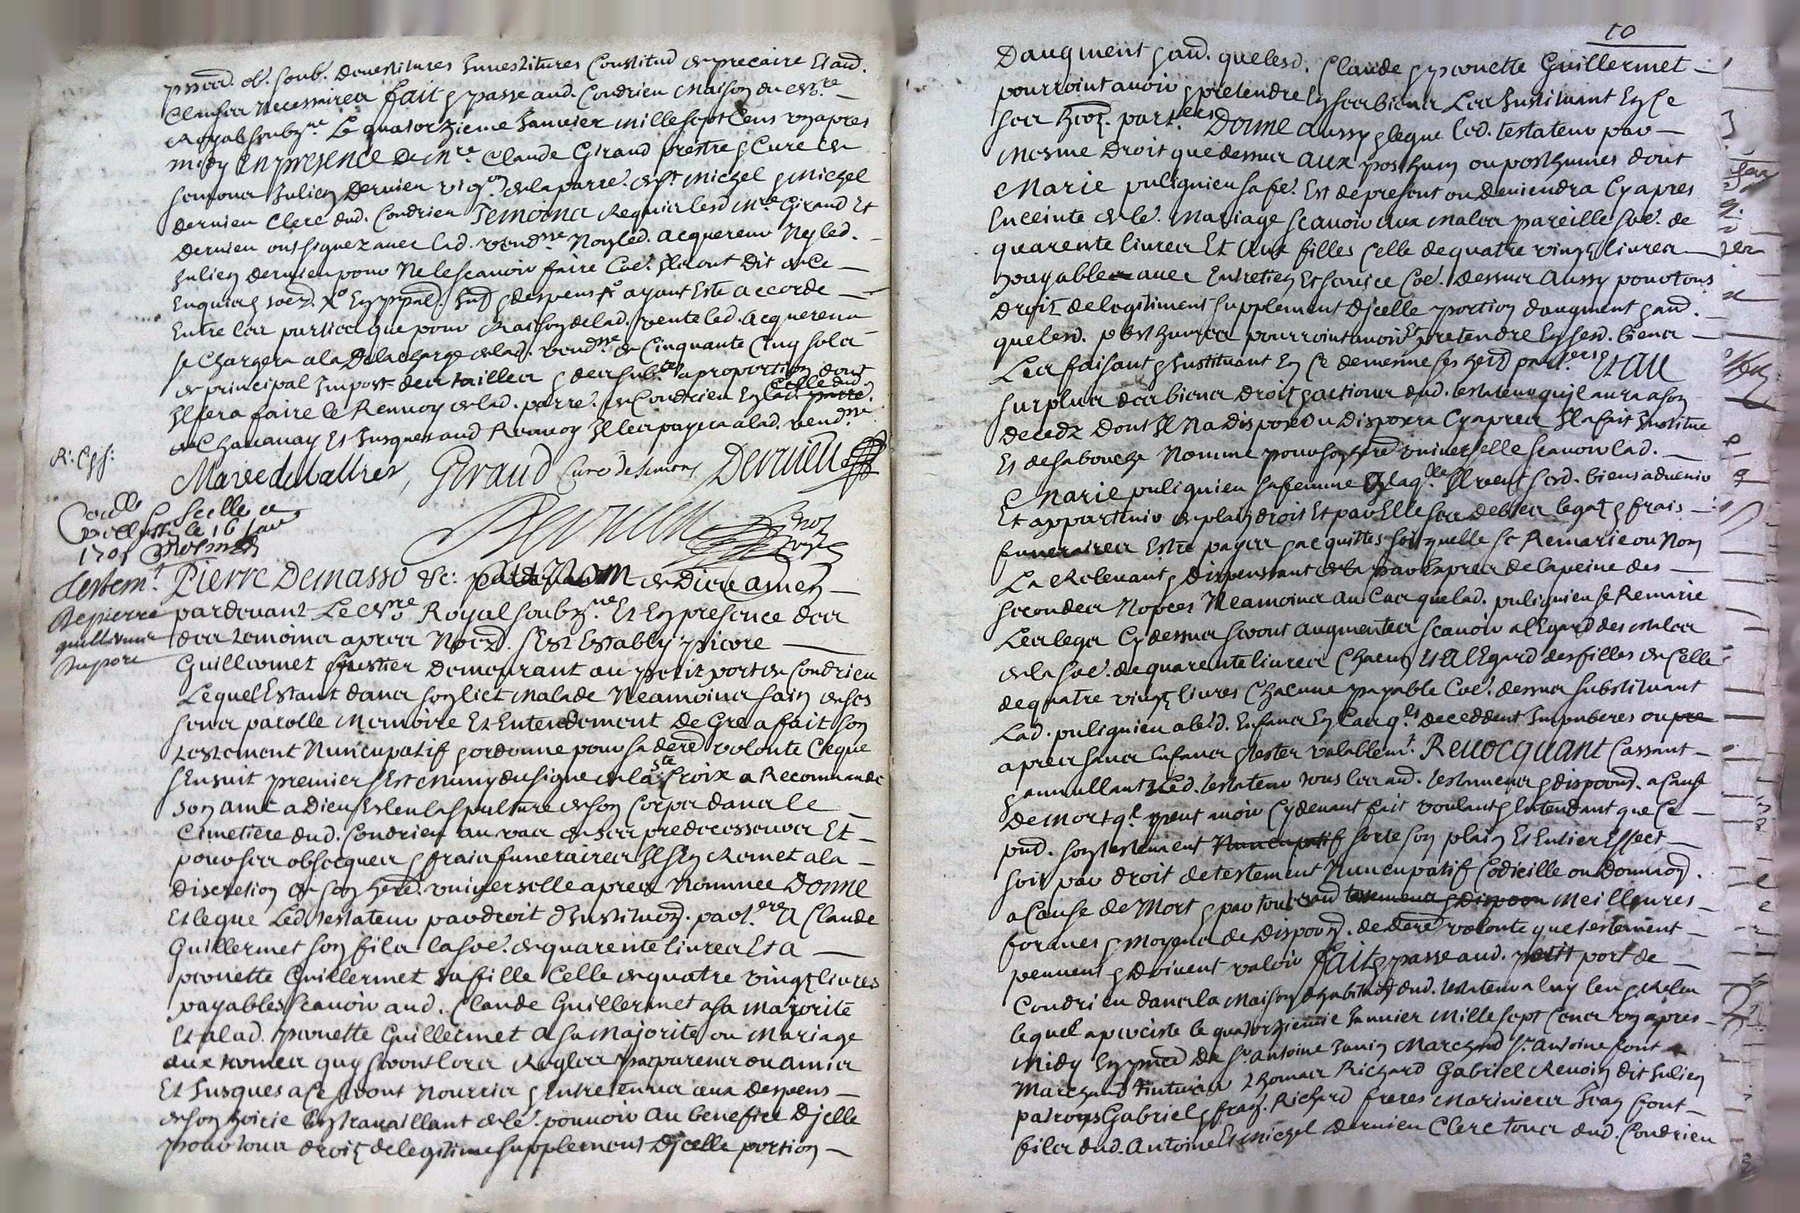 Clauses necessaires fait & passe aud. Condrieu maison du no.re
Royal soubz.ne Le quatorzieme Janvier mille sept cens un apres
midy en presence de M.re Claude Giraud prestre & Curé de
Julien Dervieu vig.on de la parre. de St Michel & Michel
Dervieu Clerc dud. Condrieu Temoins Requis lesd M.re Giraud Et
Dervieu ont signez avec lad. vend.sse Non led. acquereur Ny led.
Julien Dervieu pour Ne le scavoir faire Coe. Ils ont Dit de ce
Enquis & soez. ayant Este accorde
Entre les parties que pour Raison de lad. vente led. acquereur
se Chargera a la Dela charge de lad. vend.sse de Cinquante Cinq sols
de principal Impost des tailles & des sub. a proportion dont
Il fera faire le Renvoy de lad. parre. de Condrieu En celle dud.
de Chavanay Et Jusques aud Renvoy Il les payera a lad. vend.sse
R: Exp:
Marie de vallires, Giraud Curé de Dervieu
Dervieu No.re Royal
Controllé & scellé a
le 16 Janv
1701
Testem.t
De pierre
guillermet
Du port
Pierre Demasso &c: Au Nom de Dieu amen
pardevant Le No.re Royal soubz.ne Et En presence des
des temoins apres Nomz. s'Est Estably pierre
Guillermet demeurant au petit port de Condrieu
Lequel Estant dans son lict malade Neamoins sain de ses
sens parolle memoire Et Entendement De Gre a fait son
testement Nuncupatif & ordonne pour sa dere volonté Ce que
s'Ensuit premier s'Est muny du signe de la S.te Croix a Recommande
son ame a Dieu Eslu la sepulture de son Corps dans le
Cimetiere dud. Condrieu au vas de ses predecesseurs Et
pour ses obseques & frais funeraires Il s'En Remet a la
discretion de son here. universelle apres Nommee Donne
Et legue Led. testateur par droit d'Instituon. part.ere A Claude
Guillermet son fils la soe. de quarente livres Et a
pernette Guillermet sa fille Celle de quatre vingt livres
payables scavoir aud. Claude Guillermet a sa majorité
Et a lad. pernette Guillermet a sa majorité ou Mariage
aux termes quy seront lors Reglez par parens ou amis
Et Jusques a ce seront Nourris & Entretenus aux despens
de son hoirie En travaillant de le. pouvoir au benefice D'jcelle
pour tous droits de legitime supplement D'jcelle portion
10
D'augment & aud. que lesd. Claude & pernette Guillermet
pourroint avoir & pretendre En ses biens Les Instituant En Ce
ses heoz. part.ers Donne aussy & legue led. testateur par
mesme Droit que dessus aux posthum ou posthumes dont
Marie puliqnieu sa fe. Est de present ou deviendra Cy apres
Enceinte de le. Mariage scavoir aux males pareille soe. de
quarente livres Et aux filles Celle de quatre vingt livres
payable avec Entretien Et service Coe. dessus Aussy pour tous
droits de legitime supplement D'jcelle portion d'augment & aud.
que lesd. posthumes pourroint avoir Et pretendre En sesd. biens
Les faisant & Instituant En Ce de mesme ses heoz part.ers Et au
surplus des biens droits & actions dud. testateur qu'il aura a son
decedz Dont Il N'a Disposé ou Disposera Cy apres Il a fait Institue
Et de sa bouche Nomme pour son here universelle scavoir lad.
Marie puliqnieu sa femme A laq.lle Il veut sesd. biens advenir
Et appartenir de plain droit Et par Elle ses debtes legats & frais
funeraires Estre payes & acquittes soit quelle se Remarie ou Non
La Relevant & Dispensant de la par Expres de la peine des
secondes Nopces Neamoins au Cas que lad. puliqnieu se Remarie
Les legs Cy dessus seront augmentes scavoir a l'Egard des males
de la soe. de quarente livres Chacun Et A l'Egard des filles de Celle
de quatre vingt livres Chacune payable Coe. dessus substituant
Lad. puliqnieu a besd. Enfans En Cas q.ls decedent Impuberes ou pre
apres sans Enfans & tester valablem.t Revocquant Cassant
& annullant Led. testateur tous les aud. testamens & dispoon. a Cause
De mort q.l peut avoir Cy devant fait voulant & Entendant que Ce
pnd. son testement Nuncupatif sorte son plain Et Entier Effect
soit par droit de testement Nuncupatif Codicille ou Donaon.
a Cause de Mort & par tout aud testemens & dispoon Meilleures
formes & moyens de Dispoon. de dere volonté que testement
peuvent & doivent valoir fait & passe aud. petit port de
Condrieu dans la Maison d'habitaon dud. testateur a luy leu & Releu
lequel a perciste le quatorzieme Janvier mille sept Cens un apres
Midy En pnce De Sr Antoine Janin Marchand Sr Antoine font
Marchand Tinturier Thomas Richard Gabriel Renoin dit Julien
patrons Gabriel & fran. Richard freres mariniers Jean font
fils dud. Antoine Et Michel Dervieu Clerc tous dud. Condrieu